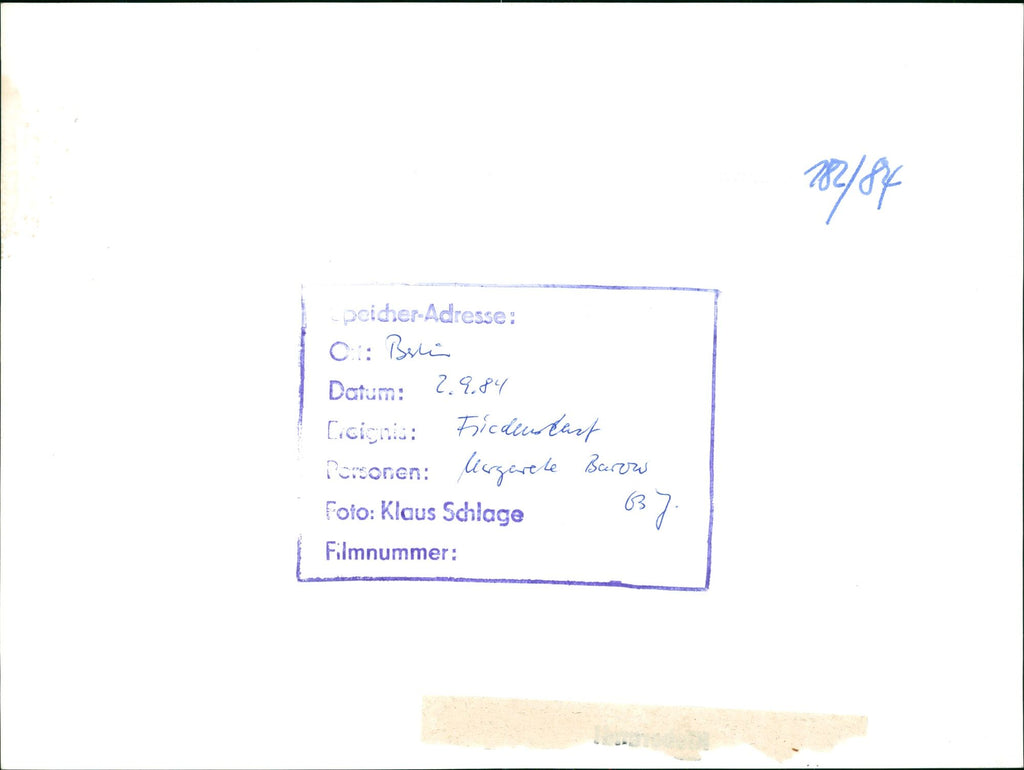 182/84
Speicher-Adresse:
Ort: Berlin
Datum: 2.9.84
Ereignis:
Personen: Margarete Barow
63 J.
Foto: Klaus Schlage
Filmnummer: